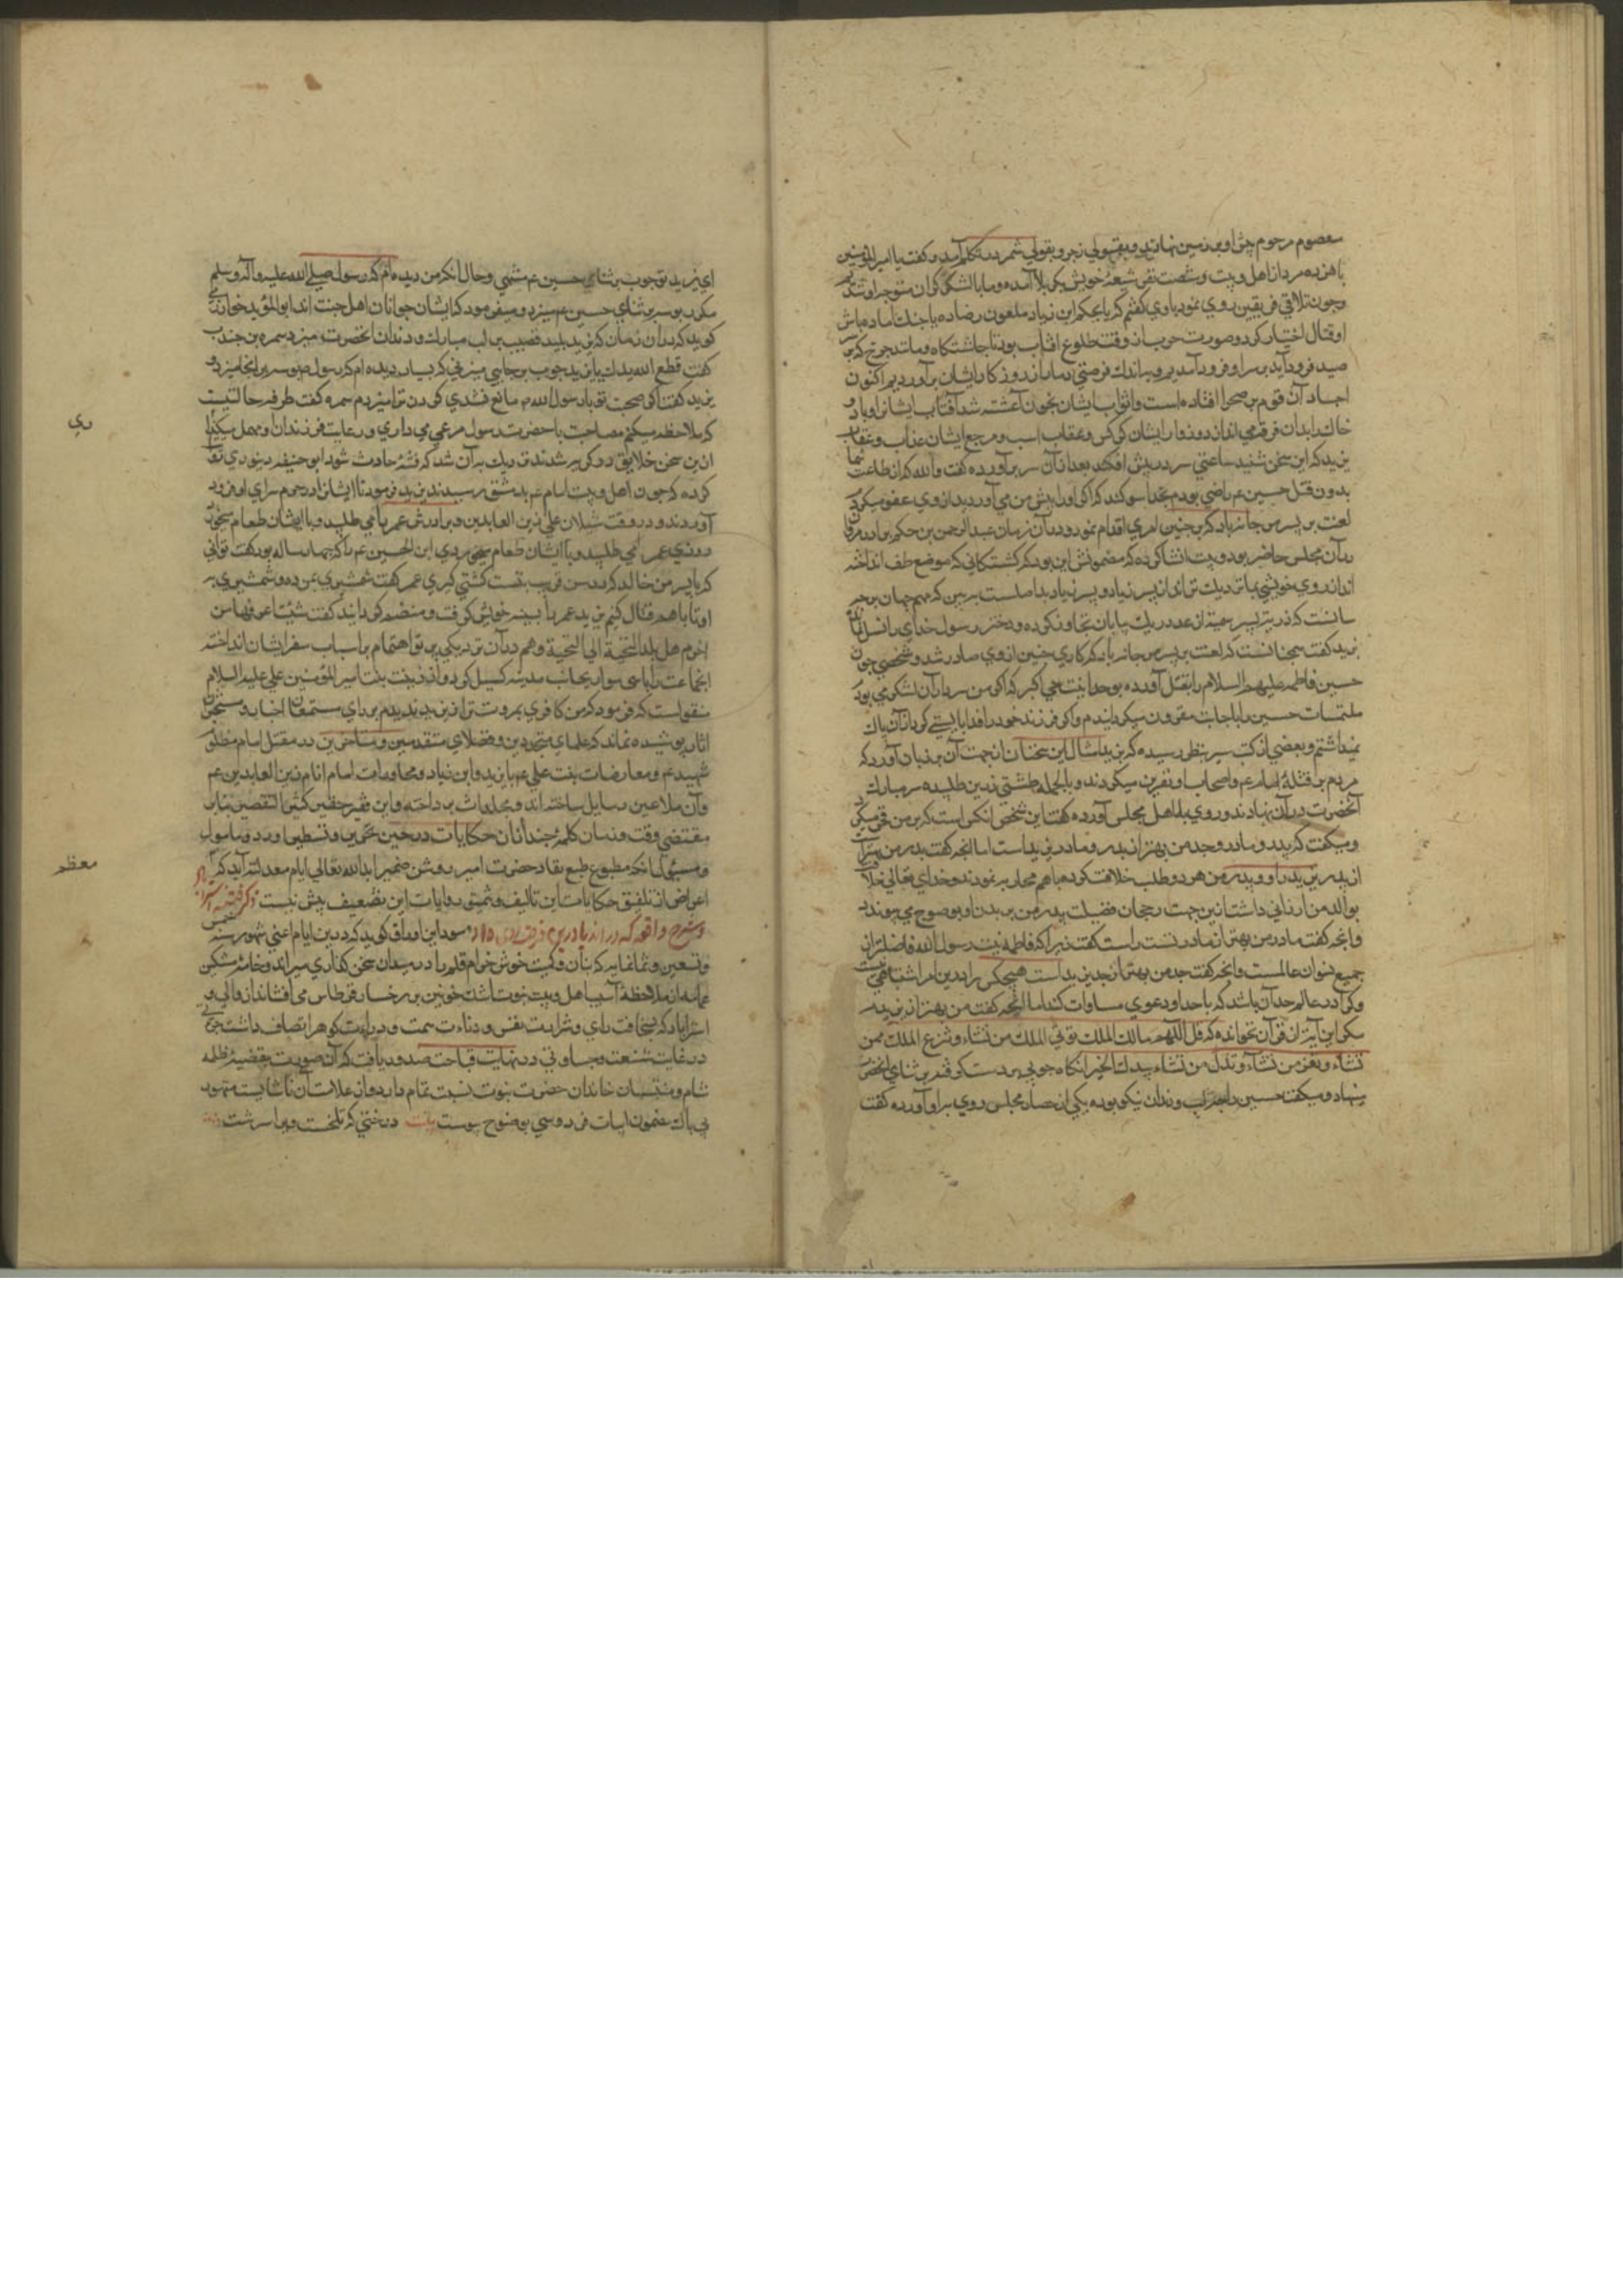 معصوم مرحوم پیش او بر زمین نهادند و بقولی زجر و بقولی شمر در تکلم آمده گفت یا امیر المؤمنین
با هژده مرد از اهل بیت و شصت نفر شیعهٔ خویش بکربلا آمده و ما با لشکر گران متوجه او شدیم
و چون تلاقی فریقین روی نمود باوی گفتم که یا بحکم ابن زیاد ملعون رضا ده یا جنک را آماده باش
او قتال اختیار کرد و صورت حرب از وقت طلوع آفتاب بود تا چاشتگاه و مانند چرخ که بر
صید فرود آید بر سر او فرود آمدیم و باندک فرصتی دمار از روزکار ایشان برآوردیم اکنون
اجساد آن قوم بر صحرا افتاده است و اثواب ایشان بخون آغشته شد آفتاب ایشانرا و باد و
خاک ابدان فرقه می اندازد و زوار ایشان کرکس و عقاب است و مرجع ایشان عذاب و عقاب
یزید که این سخن شنید ساعتی سر در پیش افکند بعد از آن سر برآورده گفت والله که از طاعت شما
بدون قتل حسین عم راضی بودم بخدا سوکند که اگر او را پیش من می آوردید از وی عفو میکردم
لعنت بر پسر مرجانه باد که بر چنین امری اقدام نمود و در آن زمان عبد الرحمن بن حکم برادر مروان
در آن مجلس حاضر بود و بیت انشا کرده که مضمونش این بود که کشتکانی که موضع طف انداخته
اند از روی خویشی بما نزدیک تر اند از پسر زیاد و پسر زیاد بد اصلست
سانست که ذریت پسر سمیه از عدد ریک بیابان تجاوز کرده و دختر رسول خدای را نسل نمانده
یزید گفت سبحانست که لعنت بر پسر مرجانه باد که کاری چنین از وی صادر شد و شخصی چون
حسین فاطمه علیهم السلام را بقتل آورده بوحدانیت حی اکبر که اگر من سردار آن لشکر می بودم
ملتمسات حسین را باجابت مقرون میکردانیدم و اگر فرزند خود را فدا بایستی کرد از آن باک
نمیداشتم و بعضی از کتب سیر بنظر رسیده که یزید امثال این سخنان از جهت آن بر زبان آورد که
مردم بر قتلهٔ امام عم و اصحاب او نفرین میکردند و بالجمله طشتی زرین طلبیده سر مبارک
آنحضرت در آن نهادند و روی باهل مجلس آورده گفت این شخص آنکس است که بر من فخر میکرد
و میگفت که پدر و مادر و جد من بهتر از پدر و مادر یزید است اما آنچه گفت پدر من بهتر
از پدر یزید را و پدر من هر دو طلب خلافت کرده با هم محاربه نمودند و خدای تعالی خلافت
بوالد من ارزانی داشت ازین جهت رجحان فضیلت پدر من بر پدر او بوضوح می پیوندد
و آنچه گفت مادر من بهتر از مادر تست راست گفت زیرا که فاطمه بنت رسول الله فاضلتر از
جمیع نسوان عالمست و آنچه گفت جد من بهتر از جد یزید است هیچکس را در این امر اشتباهی نیست
و کرا در عالم حد آن باشد که با جد او دعوی مساوات کند اما آنچه گفت من بهتر از یزیدم
مگر این آیه از قرآن نخوانده که قل اللهم مالک الملک تؤتی الملک من تشاء و تنزع الملک ممن
تشاء و تعز من تشاء و تذل من تشاء بیدک الخیر آنکاه چوبی بر دست گرفته بر ثنای آنحضرت
مینهاد و میگفت حسین را چه لب و دندان نیکو بوده یکی از حضار مجلس روی بر او آورده گفت
ای یزید تو چوب بر ثنای حسین عم میزنی و حال آنکه من دیده ام که رسول صلی الله علیه و آله و سلم
مکرر بوسه بر ثنای حسین عم میزد و میفرمود که ایشان جوانان اهل جنت اند ابو المؤید خوارزمی
گوید که در آن زمان که یزید پلید قضیب بر لب مبارک و دندان آنحضرت میزد سمره بن جندب
گفت قطع الله یدک یا یزید چوب بر جایی میزنی که بسیار دیده ام که رسول ص بوسه بر آنجا میزد
یزید گفت اگر صحبت تو با رسول الله مانع نشدی گردن ترا میزدم سمره گفت طرفه حالتیست
که ملاحظه میکنی مصاحبت با حضرت رسول مرعی می داری و رعایت فرزندان او مهمل میکنی
از این سخن خلایق در گریه شدند نزدیک بر آن شد که فتنهٔ حادث شود ابو حنیفه دینوری نقل
کرده که چون اهل و بیت امام عم بدمشق رسیدند یزید فرمود تا ایشانرا در حرم سرای او فرود
آوردند و در وقت شیلان علی زین العابدین و برادرش عمر را می طلبید و با ایشان طعام میخورد
روزی عمر را می طلبید و با ایشان طعام میخوردی ابن الحسین عم را که چهار ساله بود گفت توانی
که با پسر من خالد که در سن قریب بتست کشتی گیری عمر گفت شمشیری بمن ده و شمشیری بر
او تا با هم قتال کنیم یزید عمر را بسینه خویش گرفت و منضم گردانید گفت شنشنة اعرفها من
اخزم هل یلد الحیة الی الحیة و هم در آن نزدیکی بر تو اهتمام بر اسباب سفر ایشان انداخته
آنجماعت را با سی سوار بجانب مدینه گسیل کرد و از زینب بنت امیر المؤمنین علی علیه السلام
منقولست که فرمود که من کافری بمروت تر از یزید ندیدم بر رای مستمعان اخبار و مستخبران
آثار پوشیده نماند که علمای متبحرین و فضلای متقدمین و متاخرین در مقتل امام مظلوم
شهید عم و معارضات بنت علی عم با یزید و ابن زیاد و محاورات امام انام زین العابدین عم
و آن ملاعین رسایل ساخته اند و مجلدات پرداخته و این فقیر حقیر کثیر التقصیر بنا بر
مقتضی وقت و زمان کلمهٔ چند از آن حکایات در حیز تحریر و تسطیر آورد و مامول
و مسئول آنکه مطبوع طبع نقاد حضرت امیر روشن ضمیر ابد الله تعالی ایام معدلته آید که
اعراض از تلفیق حکایات این تالیف و تنمیق روایات این تضعیف بیش نیست ذکر فتنه استراباد
و شرح واقعه که در آن دیار درین فرصت روی داد مسود این اوراق گوید که درین ایام اعنی شهور سنه خمس
و تسعین و ثمانمایه که بنان و کمیت خوش خرام قلم را در میدان سخن گذاری میراند و خامهٔ مشکین
عمامه از ملاحظهٔ آسیب اهل و بیت نبوت اشک خونین بر رخسار قرطاس می افشاند از والی
استراباد که بسخافت رای و شرارت نفس و دناءت همت و ردائت گوهر اتصاف داشت
در غایت شنعت و جساوتی در نهایت قباحت صدور یافت که آن صورت بقضیهٔ ظلمه
شام و منتسبان خاندان حضرت نبوت نسبت تمام دارد و از علامات آن ناشایسته متهور
بی باک مضمون ابیات فردوسی بوضوح پیوست بیت درختی که تلخست ویرا سرشت
ری
معظم